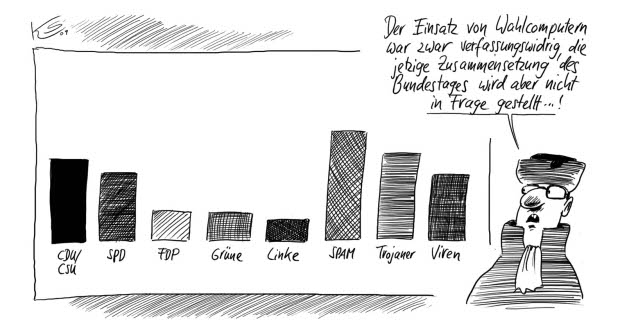 KS.09
Der Einsatz von Wahlcomputern
war zwar verfassungswidrig, die
jetzige Zusammensetzung des
Bundestages wird aber nicht
in Frage gestellt...!
CDU/
CSU
SPD
FDP
Grüne
Linke
SPAM
Trojaner
Viren